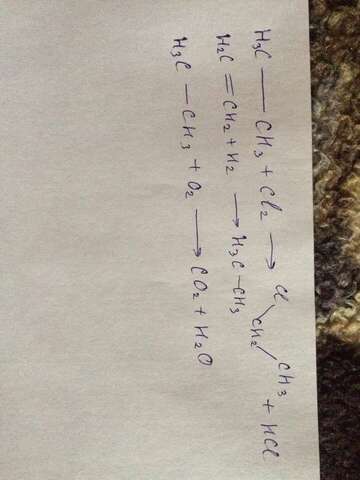 H₃C — CH₃ + Cl₂ → Cl\CH₂/CH₃ + HCl
H₂C = CH₂ + H₂ → H₃C-CH₃
H₃C — CH₃ + O₂ → CO₂ + H₂O